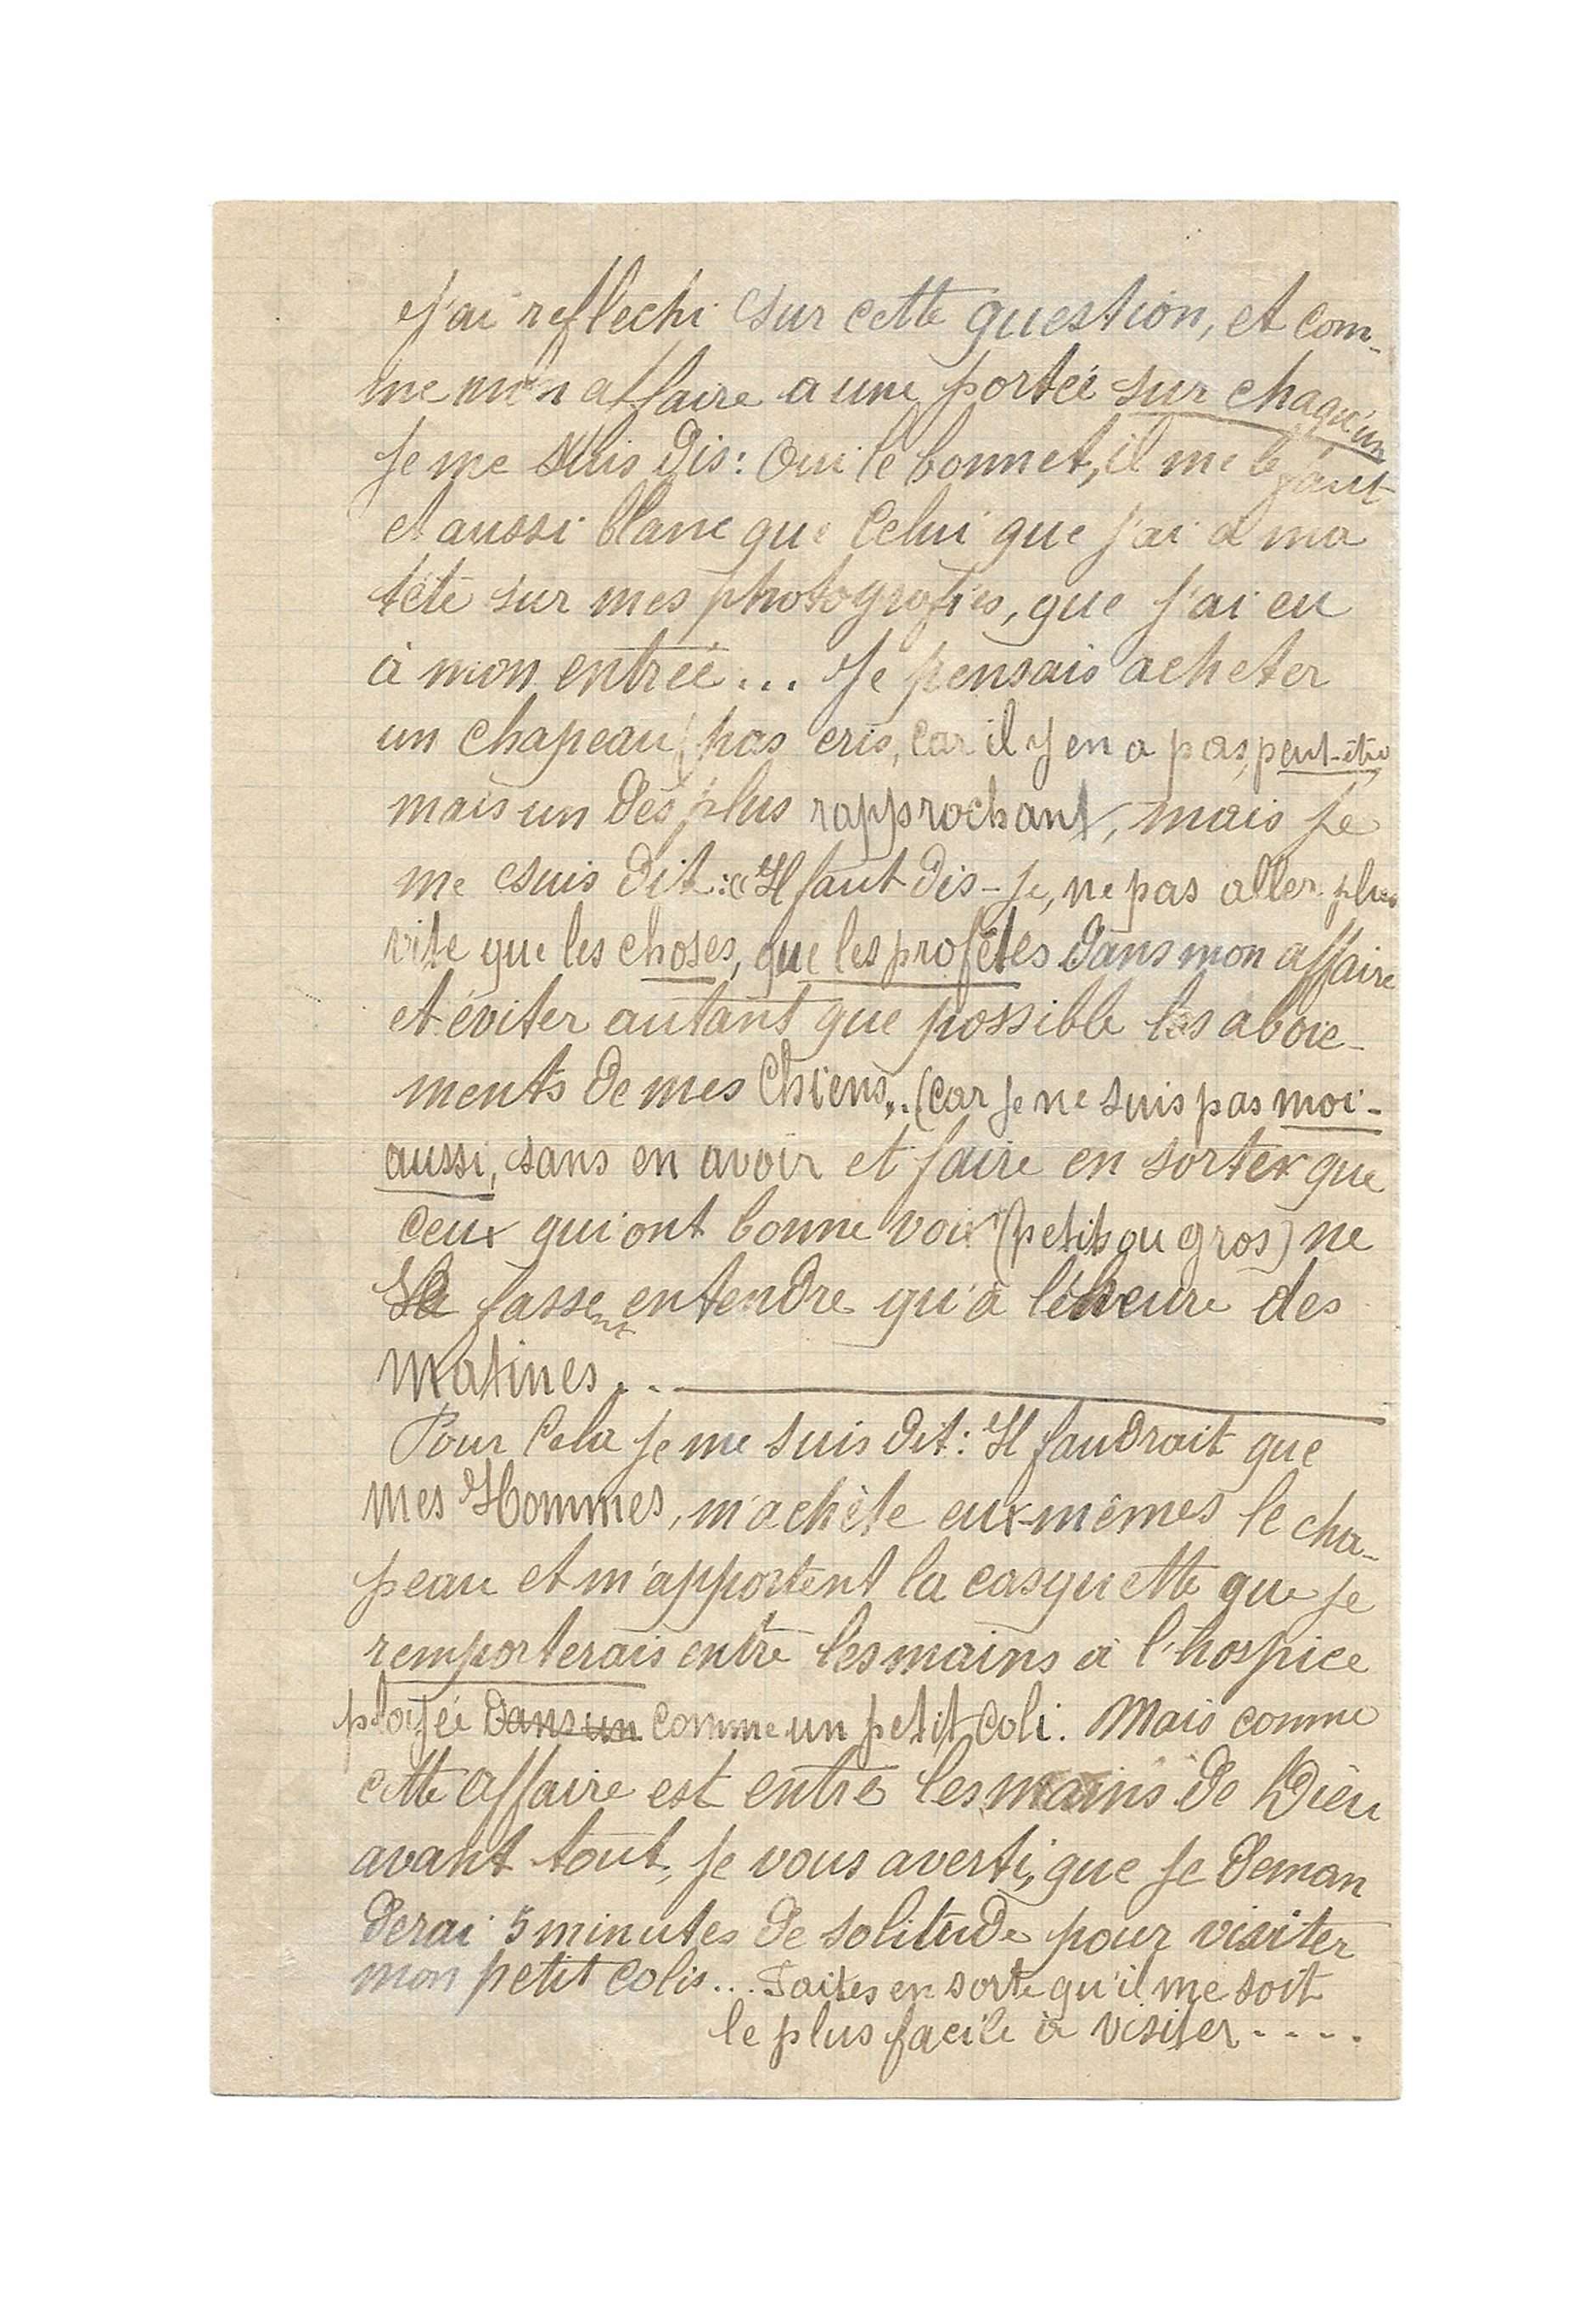 J'ai reflechi sur cette question, et com-
me mon affaire a une portée sur chaqu'un
Je me suis dis: Oui le bonnet, il me le faut
et aussi blanc que celui que j'ai à ma
tête sur mes photografies, que j'ai eu
à mon entrée... Je pensais acheter
un chapeau (pas cris, car il y en a pas, peut-être
mais un des plus rapprochant, mais je
me suis dit: « Il faut dis-je, ne pas aller plus
vite que les choses, que les profêtes dans mon affaire
et éviter autant que possible les aboie-
ments de mes Chiens... (car je ne suis pas moi-
aussi, sans en avoir et faire en sorter que
ceux qui ont bonne voix (petits ou gros) ne
se fassent entendre qu'à l'heure des
Matines...
Pour cela je me suis dit: Il faudrait que
mes Hommes, m'achète eux-mêmes le cha-
peau et m'apportent la casquette que je
remporterais entre les mains à l'hospice
ployée dans un comme un petit coli. Mais comme
cette affaire est entre les mains de Dieu
avant tout, je vous averti, que je deman
derai 5 minutes de solitude pour visiter
mon petit colis... Faites en sorte qu'il me soit
le plus facile à visiter....